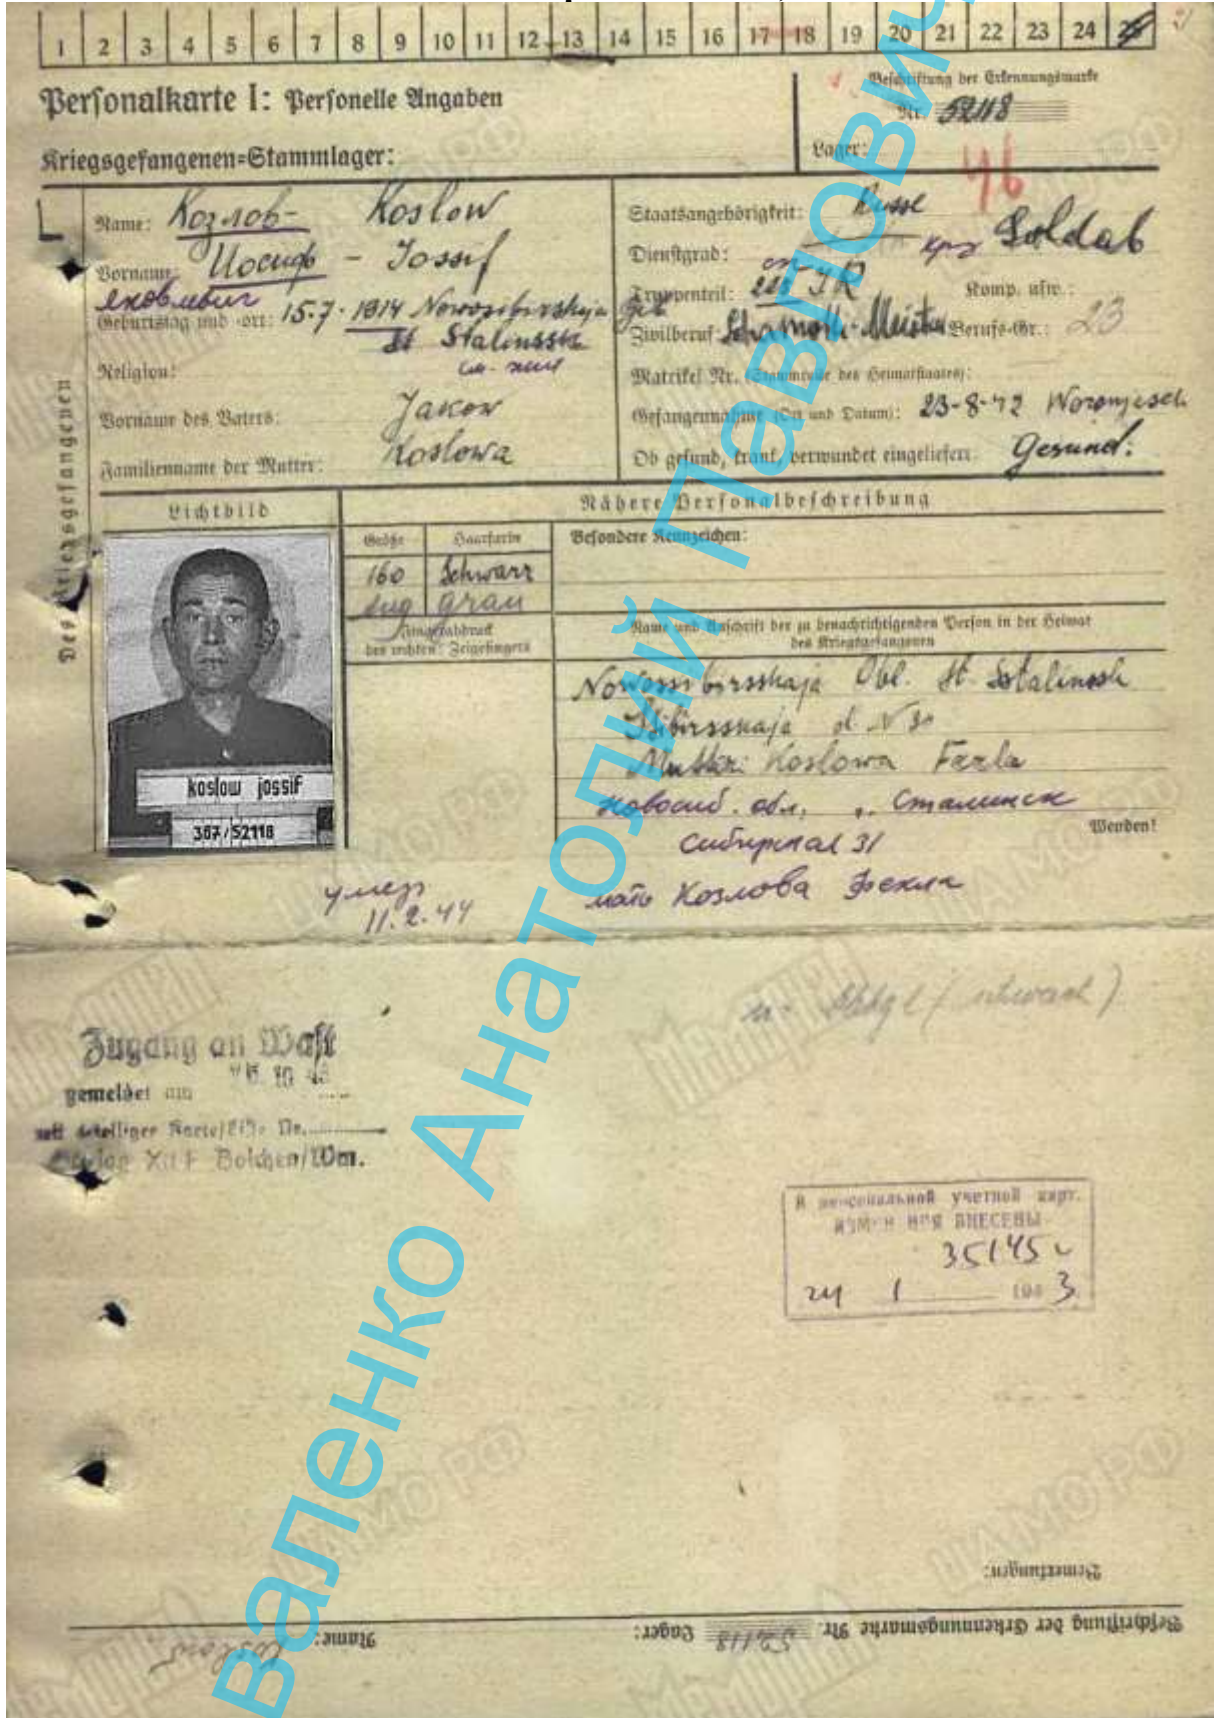 1 2 3 4 5 6 7 8 9 10 11 12 13 14 15 16 17 18 19 20 21 22 23 24 25
Personalkarte I: Personelle Angaben
Beschriftung der Erkennungsmarke
Nr. 52118
Kriegsgefangenen=Stammlager:
Lager:
46
Des Kriegsgefangenen
Name: Козлов - Koslow
Vorname: Иосиф - Jossif
Яковлевич
Geburtstag und -ort: 15.7.1914 Nowosibirskaja Geb
St Stalinssk
Religion:
см. ниже
Vorname des Vaters: Jakow
Familienname der Mutter: Koslowa
Staatsangehörigkeit: Russe
Dienstgrad: Soldat
Truppenteil: IR Komp. usw.:
Zivilberuf: Meister Berufs-Gr.: 23
Matrikel Nr. (Stammrolle des Heimatstaates):
Gefangennahme (Ort und Datum): 23-8-42 Woronjesch
Ob gesund, krank, verwundet eingeliefert: Gesund.
Lichtbild
Nähere Personalbeschreibung
Größe Haarfarbe
160 Schwarz
Aug grau
Fingerabdruck
des rechten Zeigefingers
Besondere Kennzeichen:
Name und Anschrift der zu benachrichtigenden Person in der Heimat
des Kriegsgefangenen
Nowossibirsskaja Obl. St. Stalinssk
Ssibirsskaja d N 30
Mutter: Koslowa Fekla
Новосиб. обл., Сталинск
Сибирская 31
мать Козлова Фекла
Wenden!
koslow jossif
367/52118
умер
11.2.44
Zugang an Wast
gemeldet am 10
Karte/Liste Nr.
Stalag XII F Bolchen/Wm.
(schwach)
В персональной учетной карт.
ИЗМЕНЕНИЯ ВНЕСЕНЫ
35145
24 1 3
Bemerkungen:
Beschriftung der Erkennungsmarke Nr. 52118 Lager:
Name: Koslow
Валенко Анатолий Павлович
Мемориал
ЦАМО РФ